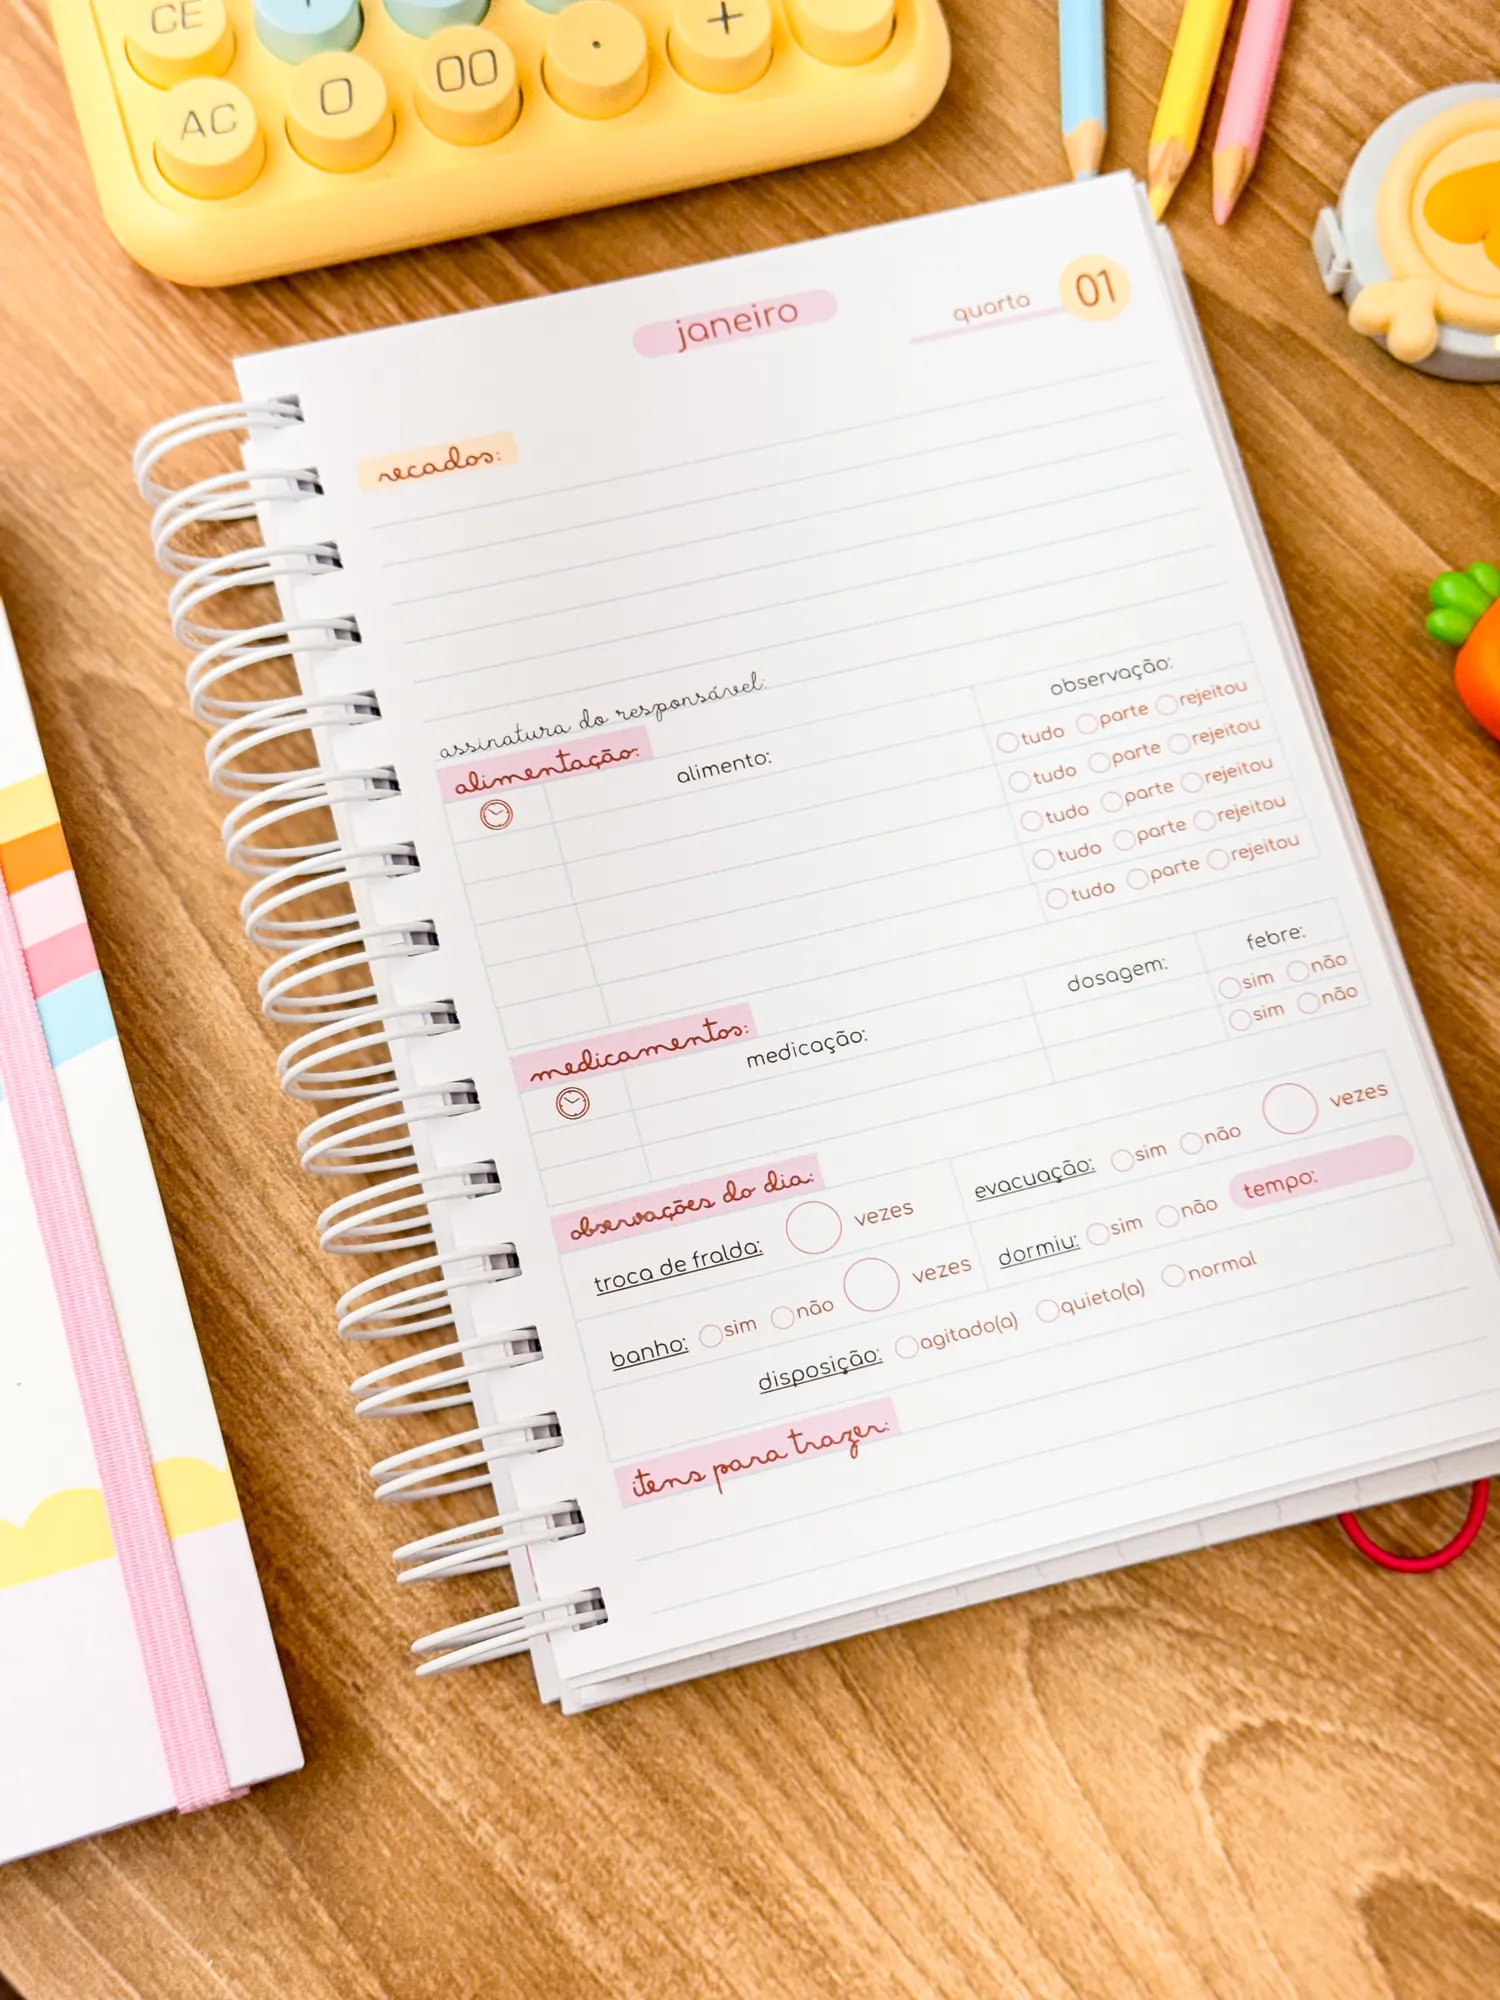 CE
AC 0 00 . +
janeiro
quarta 01
recados:
assinatura do responsável:
alimentação:
alimento:
observação:
tudo parte rejeitou
tudo parte rejeitou
tudo parte rejeitou
tudo parte rejeitou
tudo parte rejeitou
medicamentos:
medicação:
dosagem:
febre:
sim não
sim não
observações do dia:
troca de fralda: vezes
evacuação: sim não vezes
banho: sim não vezes
dormiu: sim não tempo:
disposição: agitado(a) quieto(a) normal
itens para trazer: